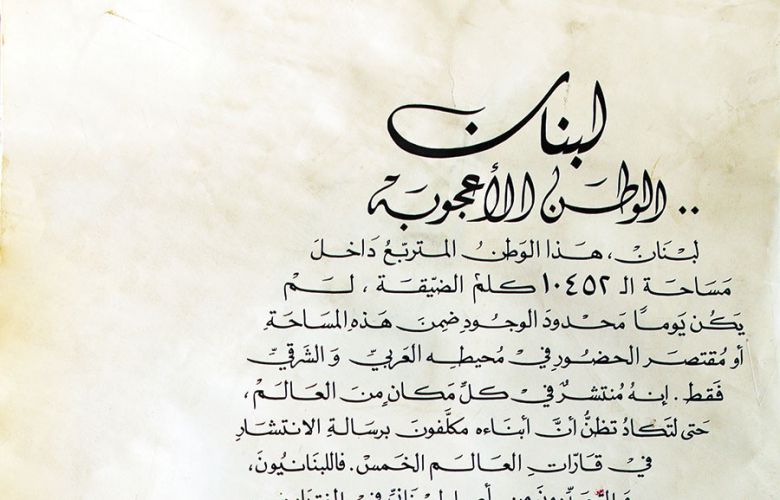 لبنان
.. الوطن الأعجوبة
لبنان، هذا الوطن المتربّع داخل
مساحة الـ ١٠٤٥٢ كلم٢ الضيّقة، لم
يكن يوماً محدود الوجود ضمن هذه المساحة
أو مقتصر الحضور في محيطه العربي والشرقي
فقط. إنه منتشرٌ في كلّ مكان من العالم،
حتى لتكاد تظنُّ أنَّ أبناءه مكلَّفون برسالة الانتشار
في قارّات العالم الخمس. فاللبنانيون،